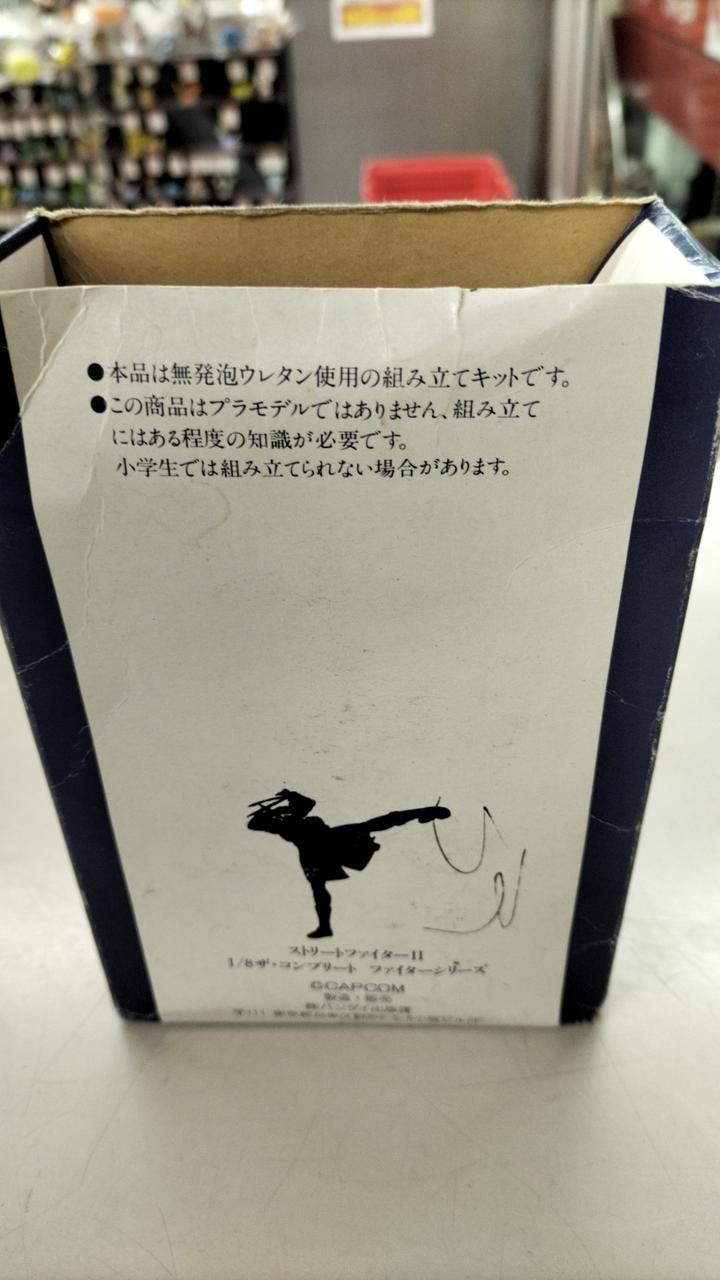 ●本品は無発泡ウレタン使用の組み立てキットです。
●この商品はプラモデルではありません、組み立て
にはある程度の知識が必要です。
小学生では組み立てられない場合があります。
ストリートファイターII
1/8ザ・コンプリート ファイターシリーズ
©CAPCOM
製造・販売
〒111